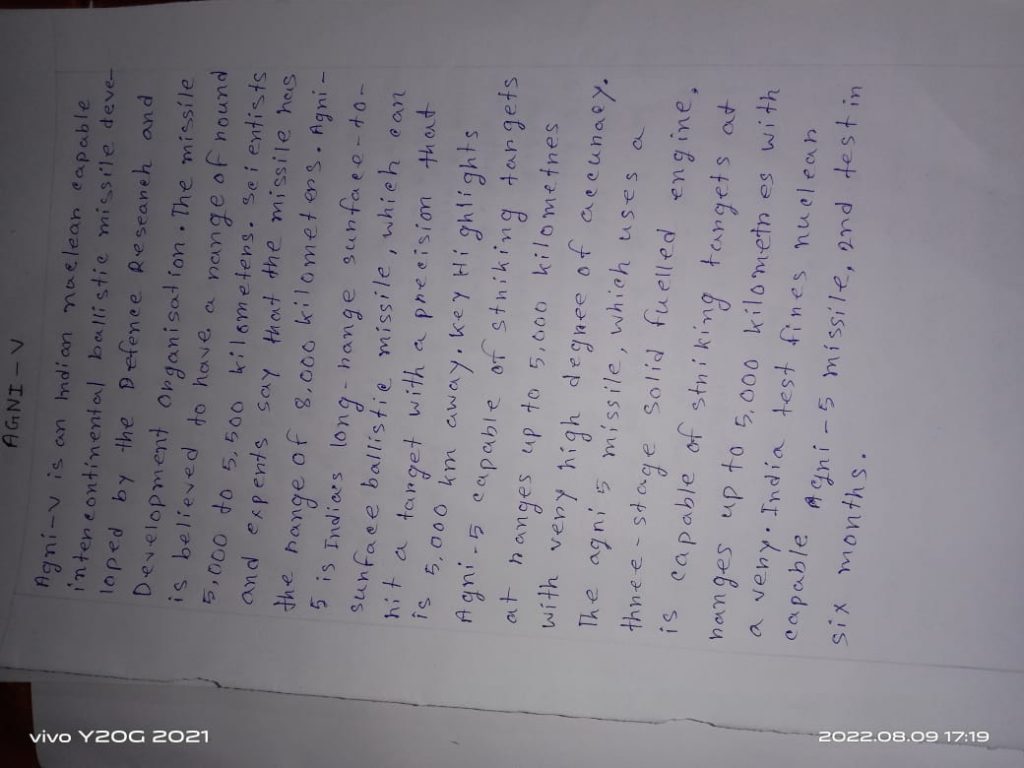 AGNI-V
Agni-V is an Indian nuclear capable
intercontimental ballistic missile deve-
loped by the Defence Research and
Development Organisation. The missile
is believed to have a range of round
5,000 to 5,500 kilometers. scientists
and experts say that the missile has
the range of 8,000 kilometers. Agni-
5 is Indias long-range surface-to-
surface ballistic missile, which can
hit a target with a precision that
is 5,000 km away. key Highlights
Agni-5 capable of striking targets
at ranges up to 5,000 kilometres
with very high degree of accurracy.
The agni 5 missile, which uses a
three-stage solid fuelled engine,
is capable of striking targets at
ranges up to 5,000 kilometres with
a very. India test fires nuclear
capable Agni-5 missile, 2nd test in
six months.
vivo Y20G 2021
2022.08.09 17:19